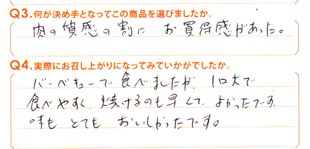 Q3.何が決め手となってこの商品を選びましたか。
肉の質感の割に お買得感があった。
Q4.実際にお召し上がりになってみていかがでしたか。
バーベキューで食べましたが、1口大で
食べやすく 焼けるのも早くて、よかったです
味も とても おいしかったです。